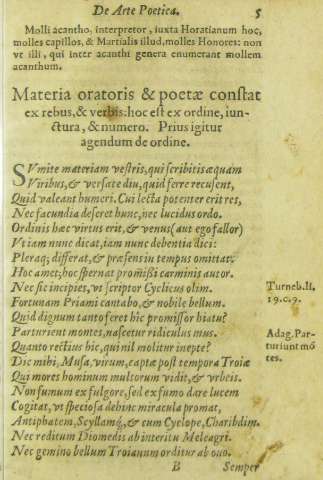 De Arte Poetica. 5
Molli acantho, interpretor, iuxta Horatianum hoc,
molles capillos, & Martialis illud, molles Honores: non
vt illi, qui inter acanthi genera enumerant mollem
acanthum.
Materia oratoris & poetæ constat
ex rebus, & verbis: hoc est ex ordine, iun-
ctura, & numero. Prius igitur
agendum de ordine.
SVmite materiam vestris, qui scribitis æquam
Viribus, & versate diu, quid ferre recusent,
Quid valeant humeri. Cui lecta potenter erit res,
Nec facundia deseret hunc, nec lucidus ordo.
Ordinis hæc virtus erit, & venus (aut ego fallor)
Vt iam nunc dicat, iam nunc debentia dici:
Pleraq; differat, & præsens in tempus omittat;
Hoc amet, hoc spernat promissi carminis autor.
Nec sic incipies, vt scriptor Cyclicus olim. Turneb. ll.
Fortunam Priami cantabo, & nobile bellum. 19. c. 9.
Quid dignum tanto feret hic promissor hiatu?
Parturient montes, nascetur ridiculus mus. Adag. Par-
Quanto rectius hic, qui nil molitur inepte? turiunt mõ
Dic mihi, Musa, virum, captæ post tempora Troiæ tes.
Qui mores hominum multorum vidit, & vrbeis.
Non fumum ex fulgore, sed ex fumo dare lucem
Cogitat, vt speciosa dehinc miracula promat,
Antiphatem, Scyllamq́;, & cum Cyclope, Charibdim.
Nec reditum Diomedis ab interitu Meleagri.
Nec gemino bellum Troianum orditur ab ouo.
B Semper